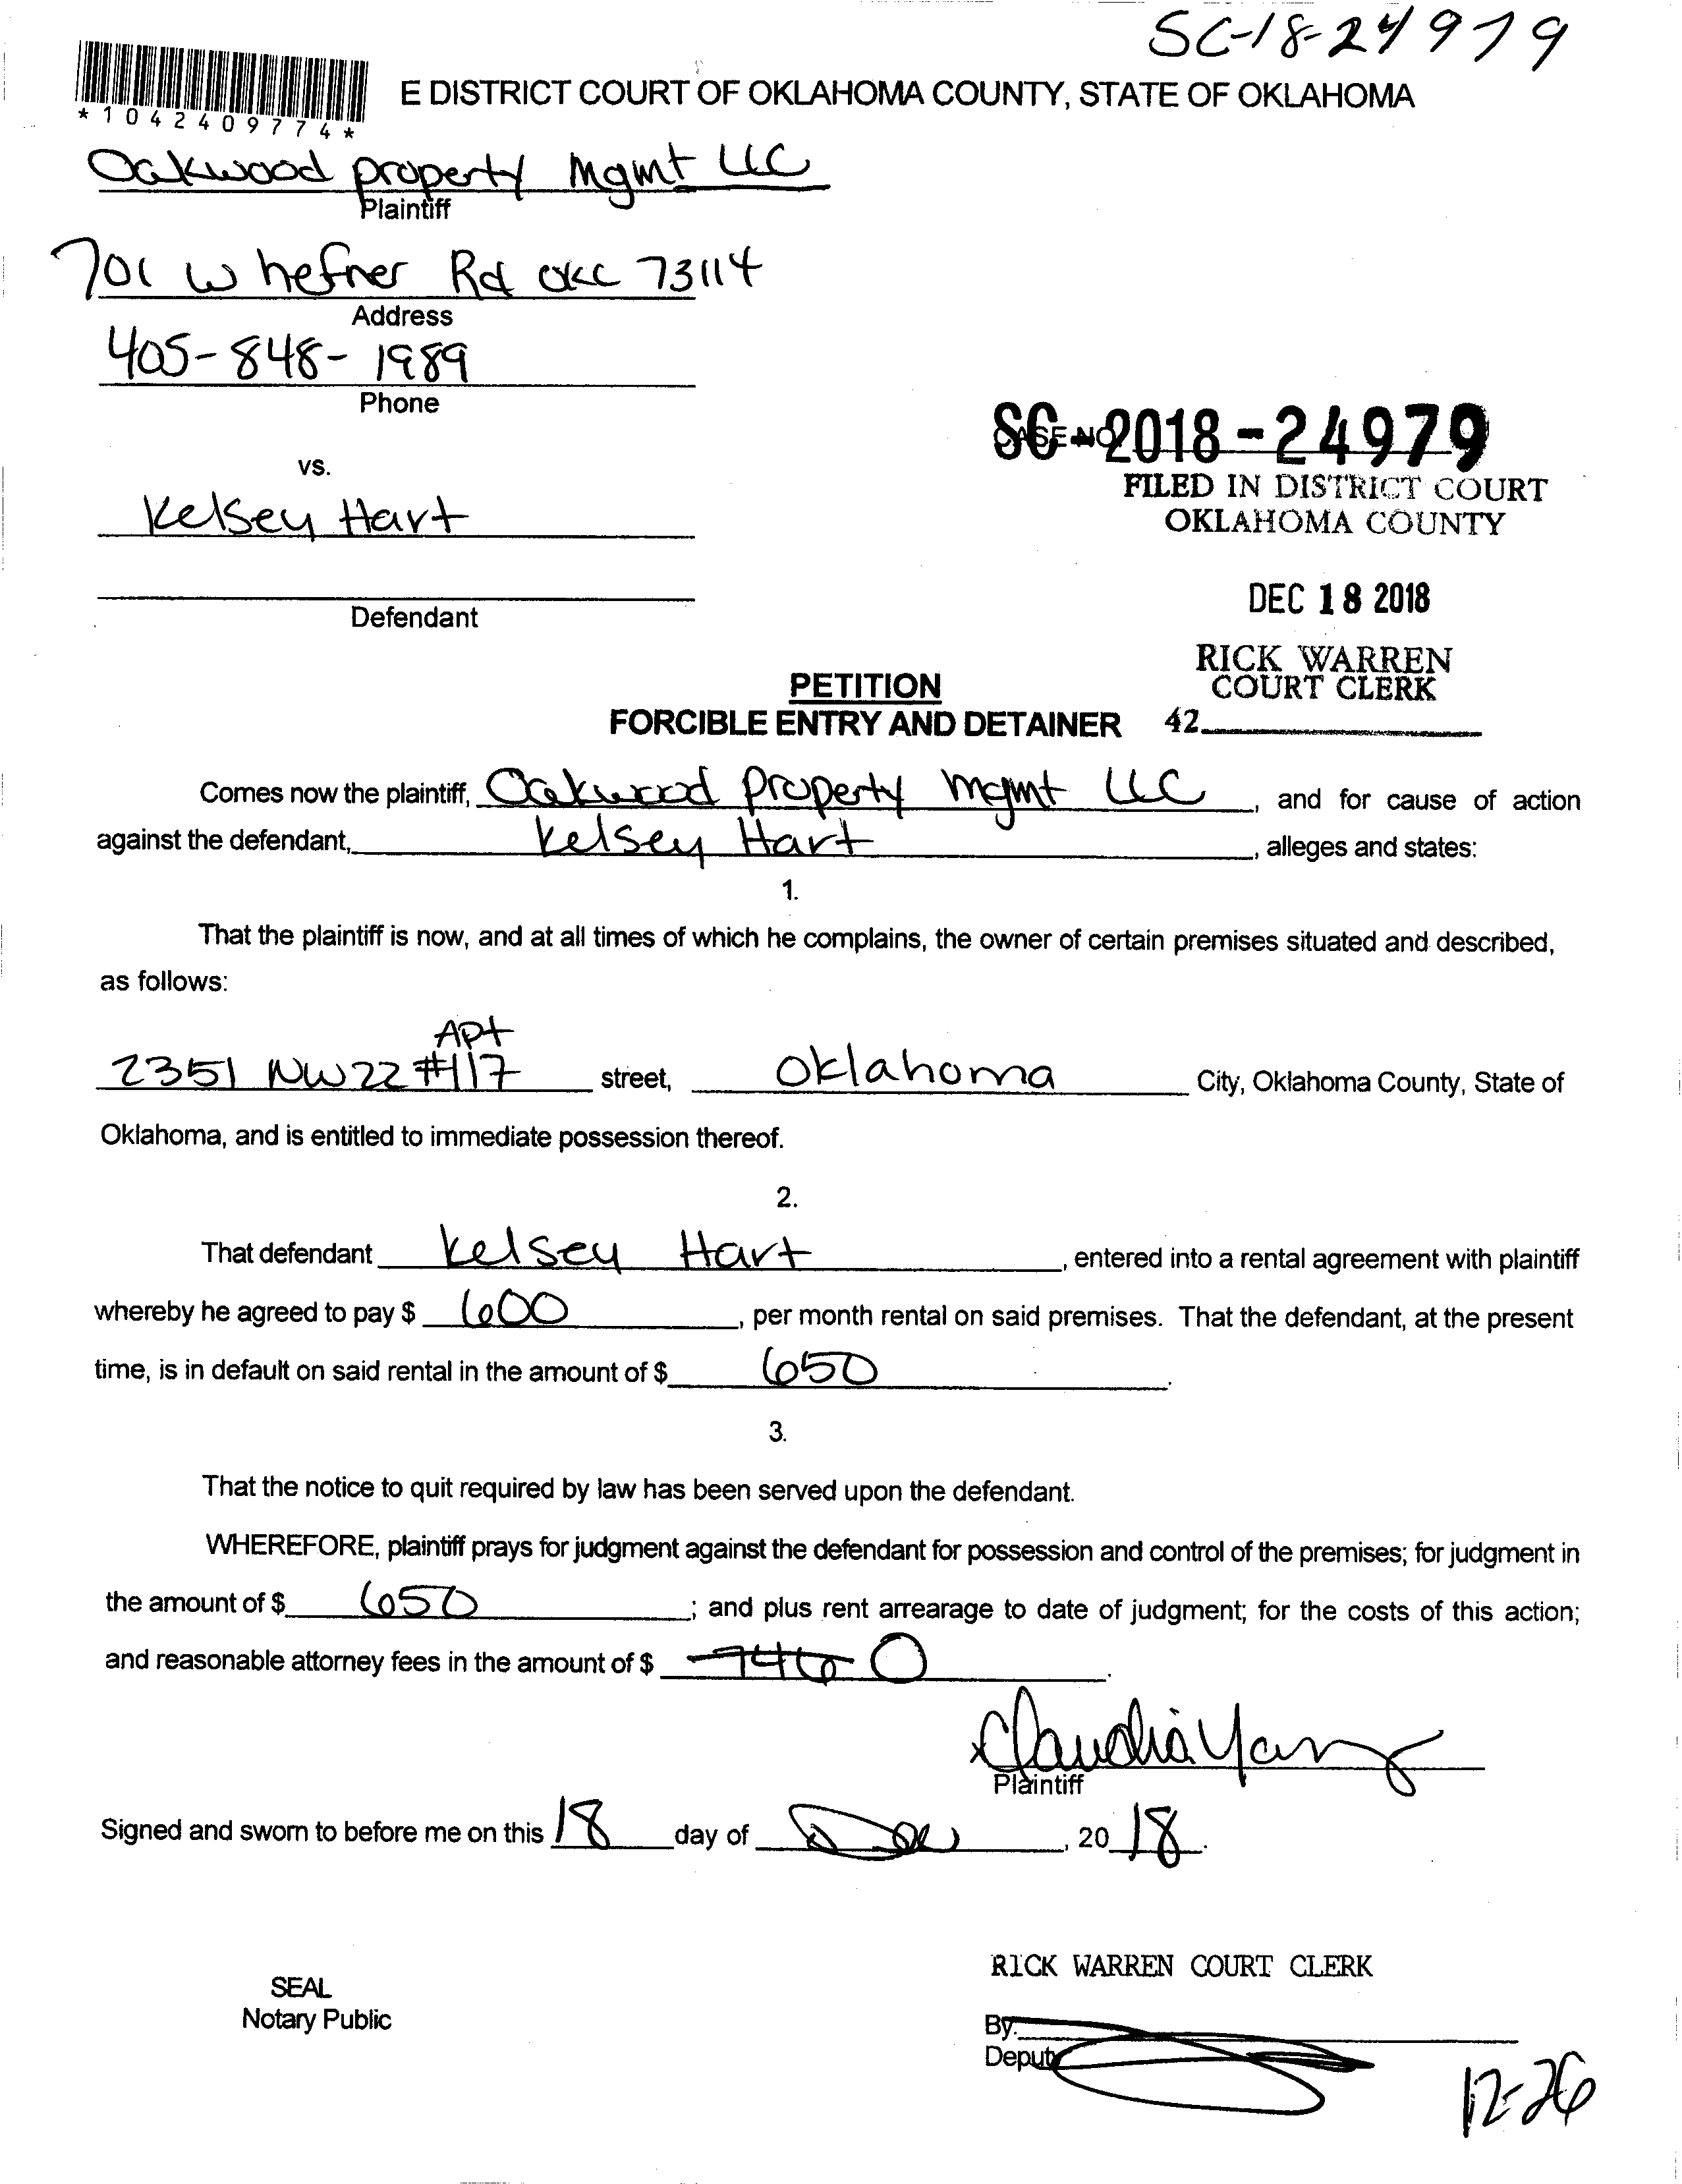 SC-18-24979
*1042409774*
E DISTRICT COURT OF OKLAHOMA COUNTY, STATE OF OKLAHOMA
Oakwood property Mgmt LLC
Plaintiff
701 W hefner Rd OKC 73114
Address
405-848-1989
Phone
SC-2018-24979
CASE NO
FILED IN DISTRICT COURT
OKLAHOMA COUNTY
vs.
Kelsey Hart
Defendant
DEC 18 2018
RICK WARREN
COURT CLERK
42
PETITION
FORCIBLE ENTRY AND DETAINER
Comes now the plaintiff, Oakwood Property Mgmt LLC, and for cause of action
against the defendant, Kelsey Hart, alleges and states:
1.
That the plaintiff is now, and at all times of which he complains, the owner of certain premises situated and described,
as follows:
Apt
2351 NW 22 #117 street, Oklahoma City, Oklahoma County, State of
Oklahoma, and is entitled to immediate possession thereof.
2.
That defendant Kelsey Hart, entered into a rental agreement with plaintiff
whereby he agreed to pay $ 600, per month rental on said premises. That the defendant, at the present
time, is in default on said rental in the amount of $ 650.
3.
That the notice to quit required by law has been served upon the defendant.
WHEREFORE, plaintiff prays for judgment against the defendant for possession and control of the premises; for judgment in
the amount of $ 650; and plus rent arrearage to date of judgment; for the costs of this action;
and reasonable attorney fees in the amount of $ 0.
x Claudia
Plaintiff
Signed and sworn to before me on this 18 day of Dec, 20 18.
RICK WARREN COURT CLERK
SEAL
Notary Public
By:
Deputy
12-26